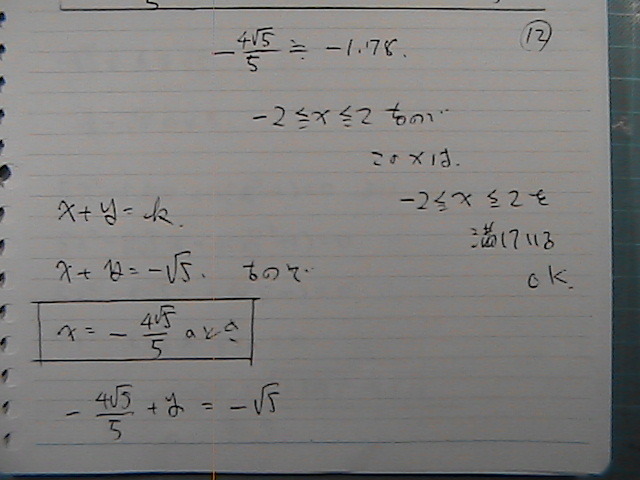 ⑫
-4√5/5 ≒ -1.178.
-2≦x≦2 なので
このxは.
-2≦x≦2を
満している
OK.
x+y=k.
x+y=-√5. なので
x=-4√5/5 のとき
-4√5/5+y=-√5